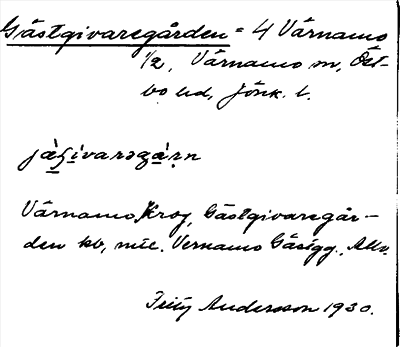 Gästgivaregården = 4 Värnamo
1/2, Värnamo sn, Öst-
bo hd, Jönk. l.
Värnamo Krog, Gästgivaregår-
den kb, mil. Vernamo Gästgg. Allm.
Fritz Andersson 1930.